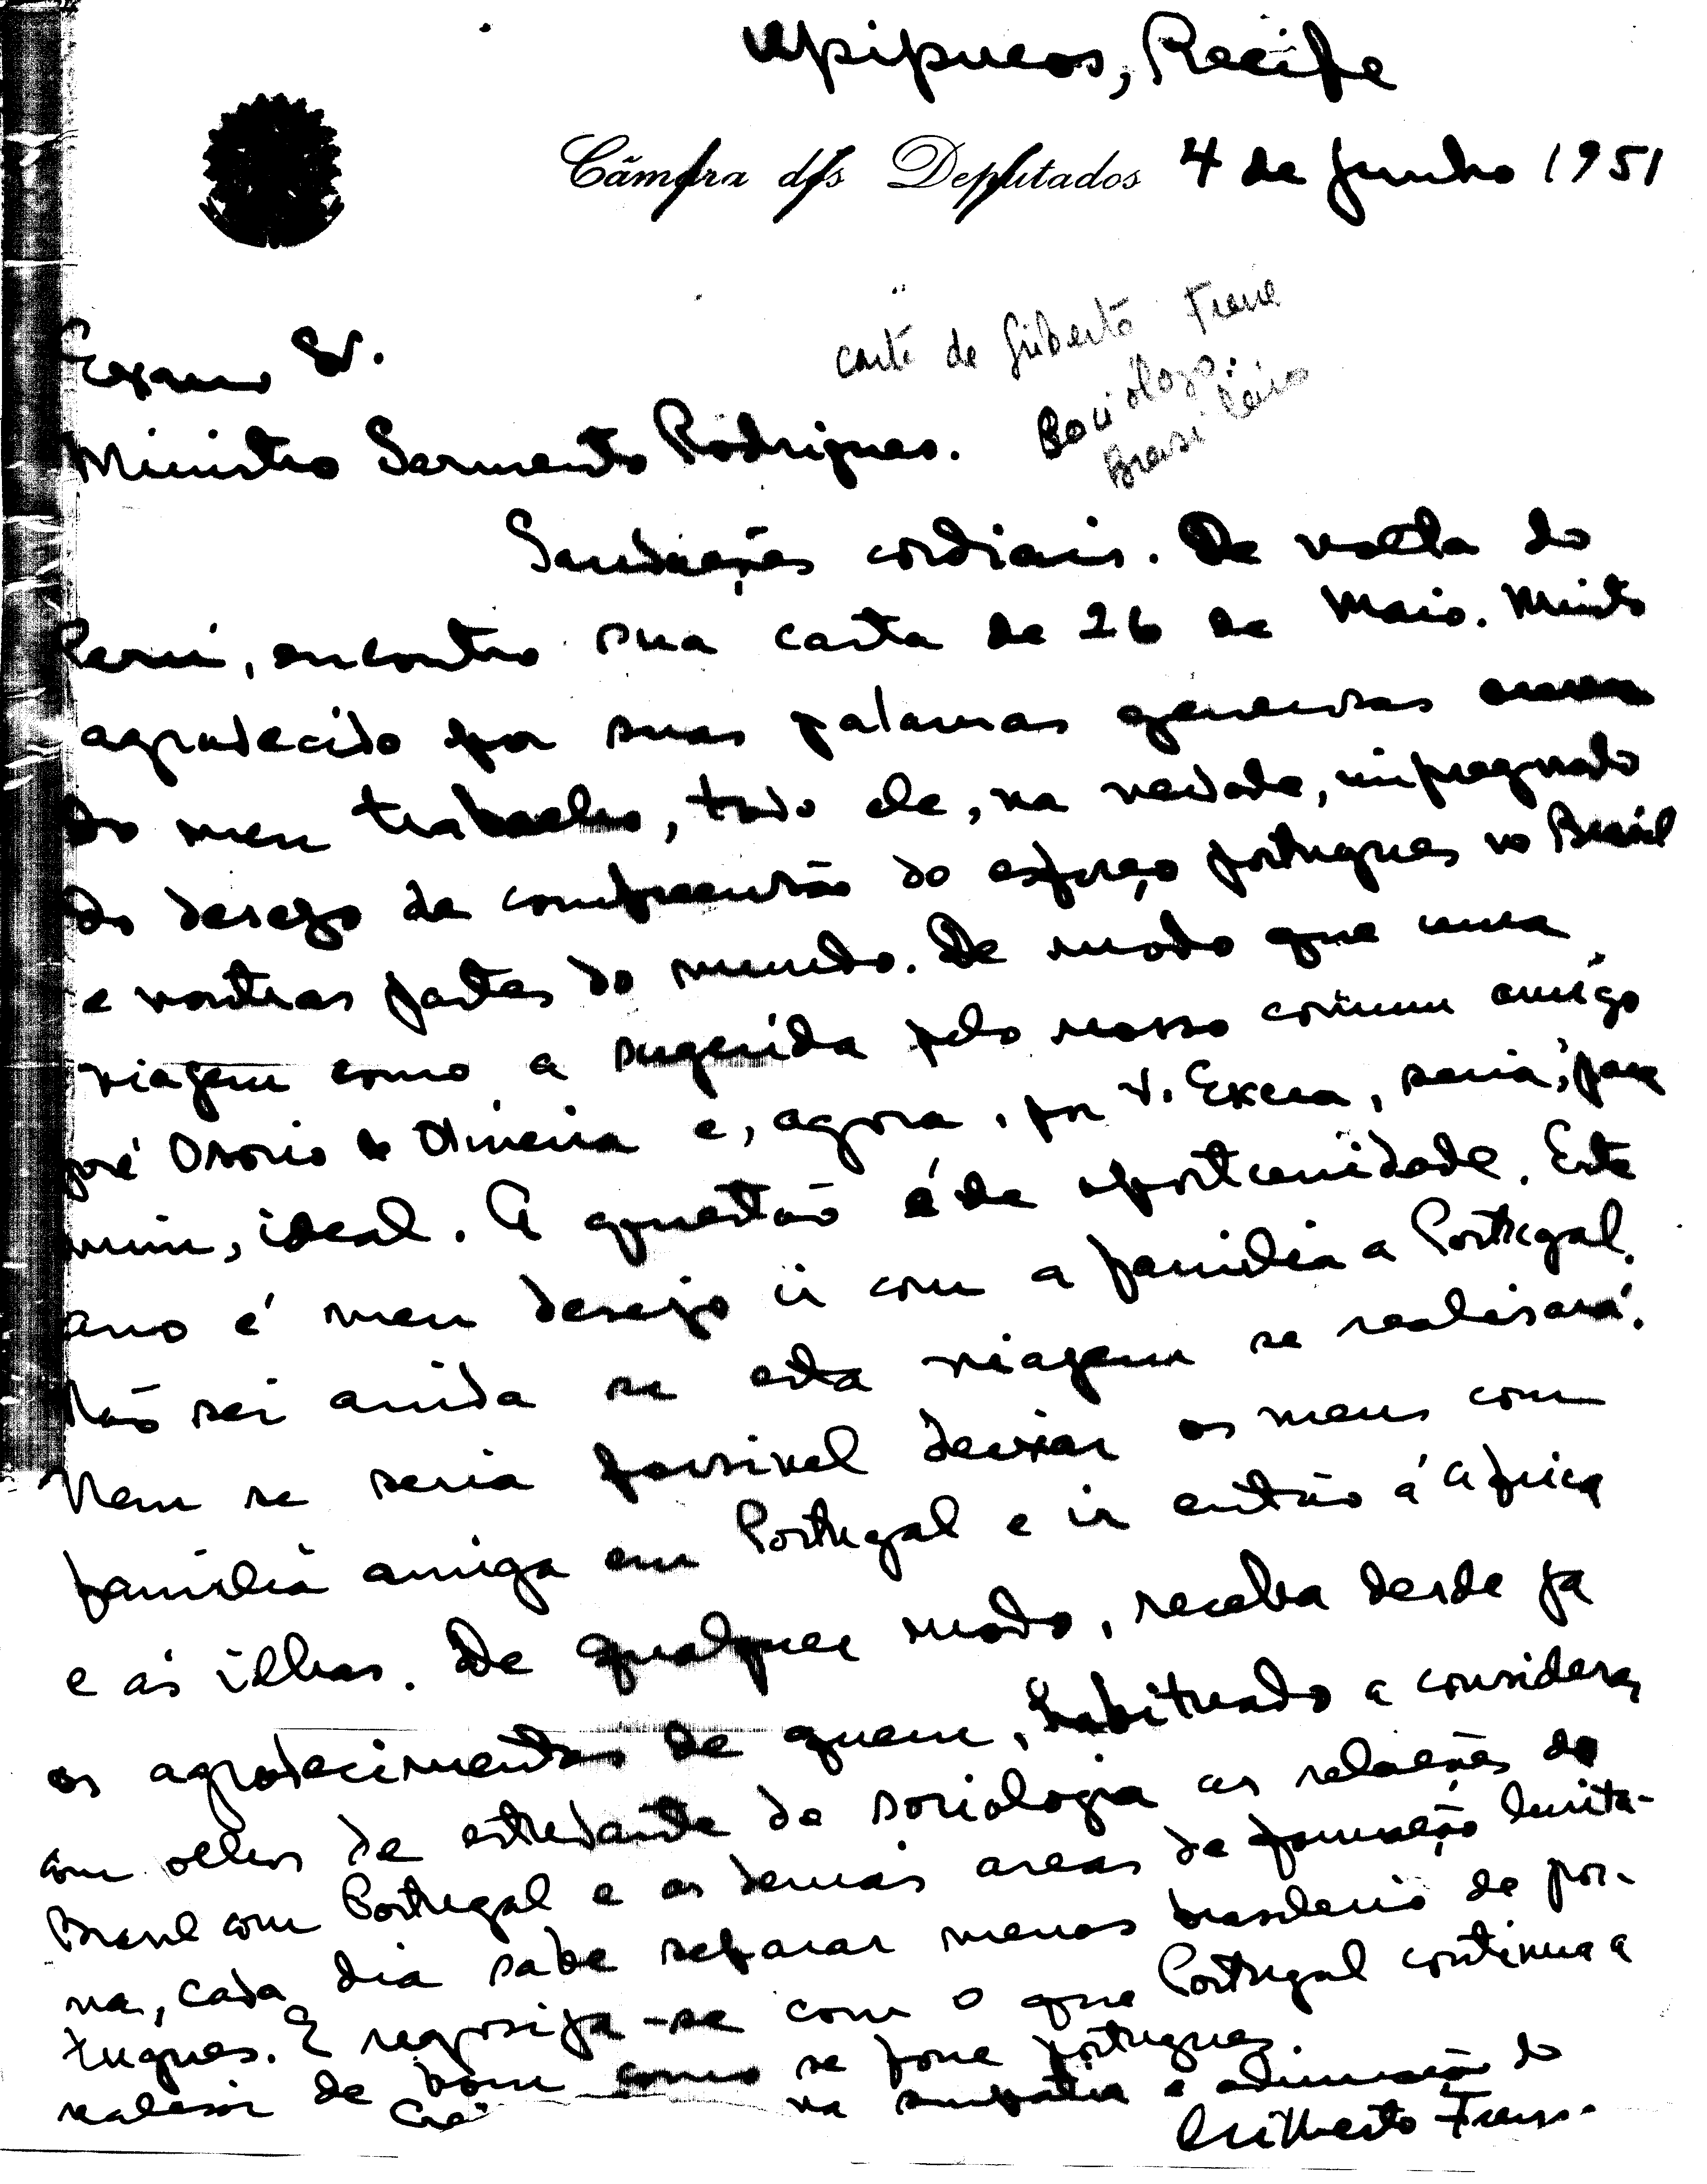 Apipucos, Recife
Câmara dos Deputados 4 de Junho 1951
carta de Gilberto Freire
Sociólogo
Brasileiro
Exmo Sr.
Ministro Sarmento Rodrigues.
Saudações cordiais. De volta do
Perú, encontro sua carta de 26 de Maio. Muito
agradecido por suas palavras generosas
do meu trabalho, todo ele, na verdade, impregnado
do desejo de compreensão do esforço portugues no Brasil
e noutras partes do mundo. De modo que uma
viagem como a sugerida pelo nosso comum amigo
José Osorio de Oliveira e, agora, por V. Excia, seria, para
mim, ideal. A questão é de oportunidade. Este
ano é meu desejo ir com a familia a Portugal.
Não sei ainda se esta viagem se realisará.
Nem se seria possivel deixar os meus com
familia amiga em Portugal e ir então á Africa
e ás ilhas. De qualquer modo, receba desde já
os agradecimentos de quem, habituado a considerar
com olhos de estudante de sociologia as relações do
Brasil com Portugal e as demais areas de formação lusita-
na, cada dia sabe separar menos brasileiro de por-
tugues. E regosija-se com o que Portugal continua a
realisar de bom como se fosse portugues.
Creia na simpatia e admiração do
Gilberto Freyre.